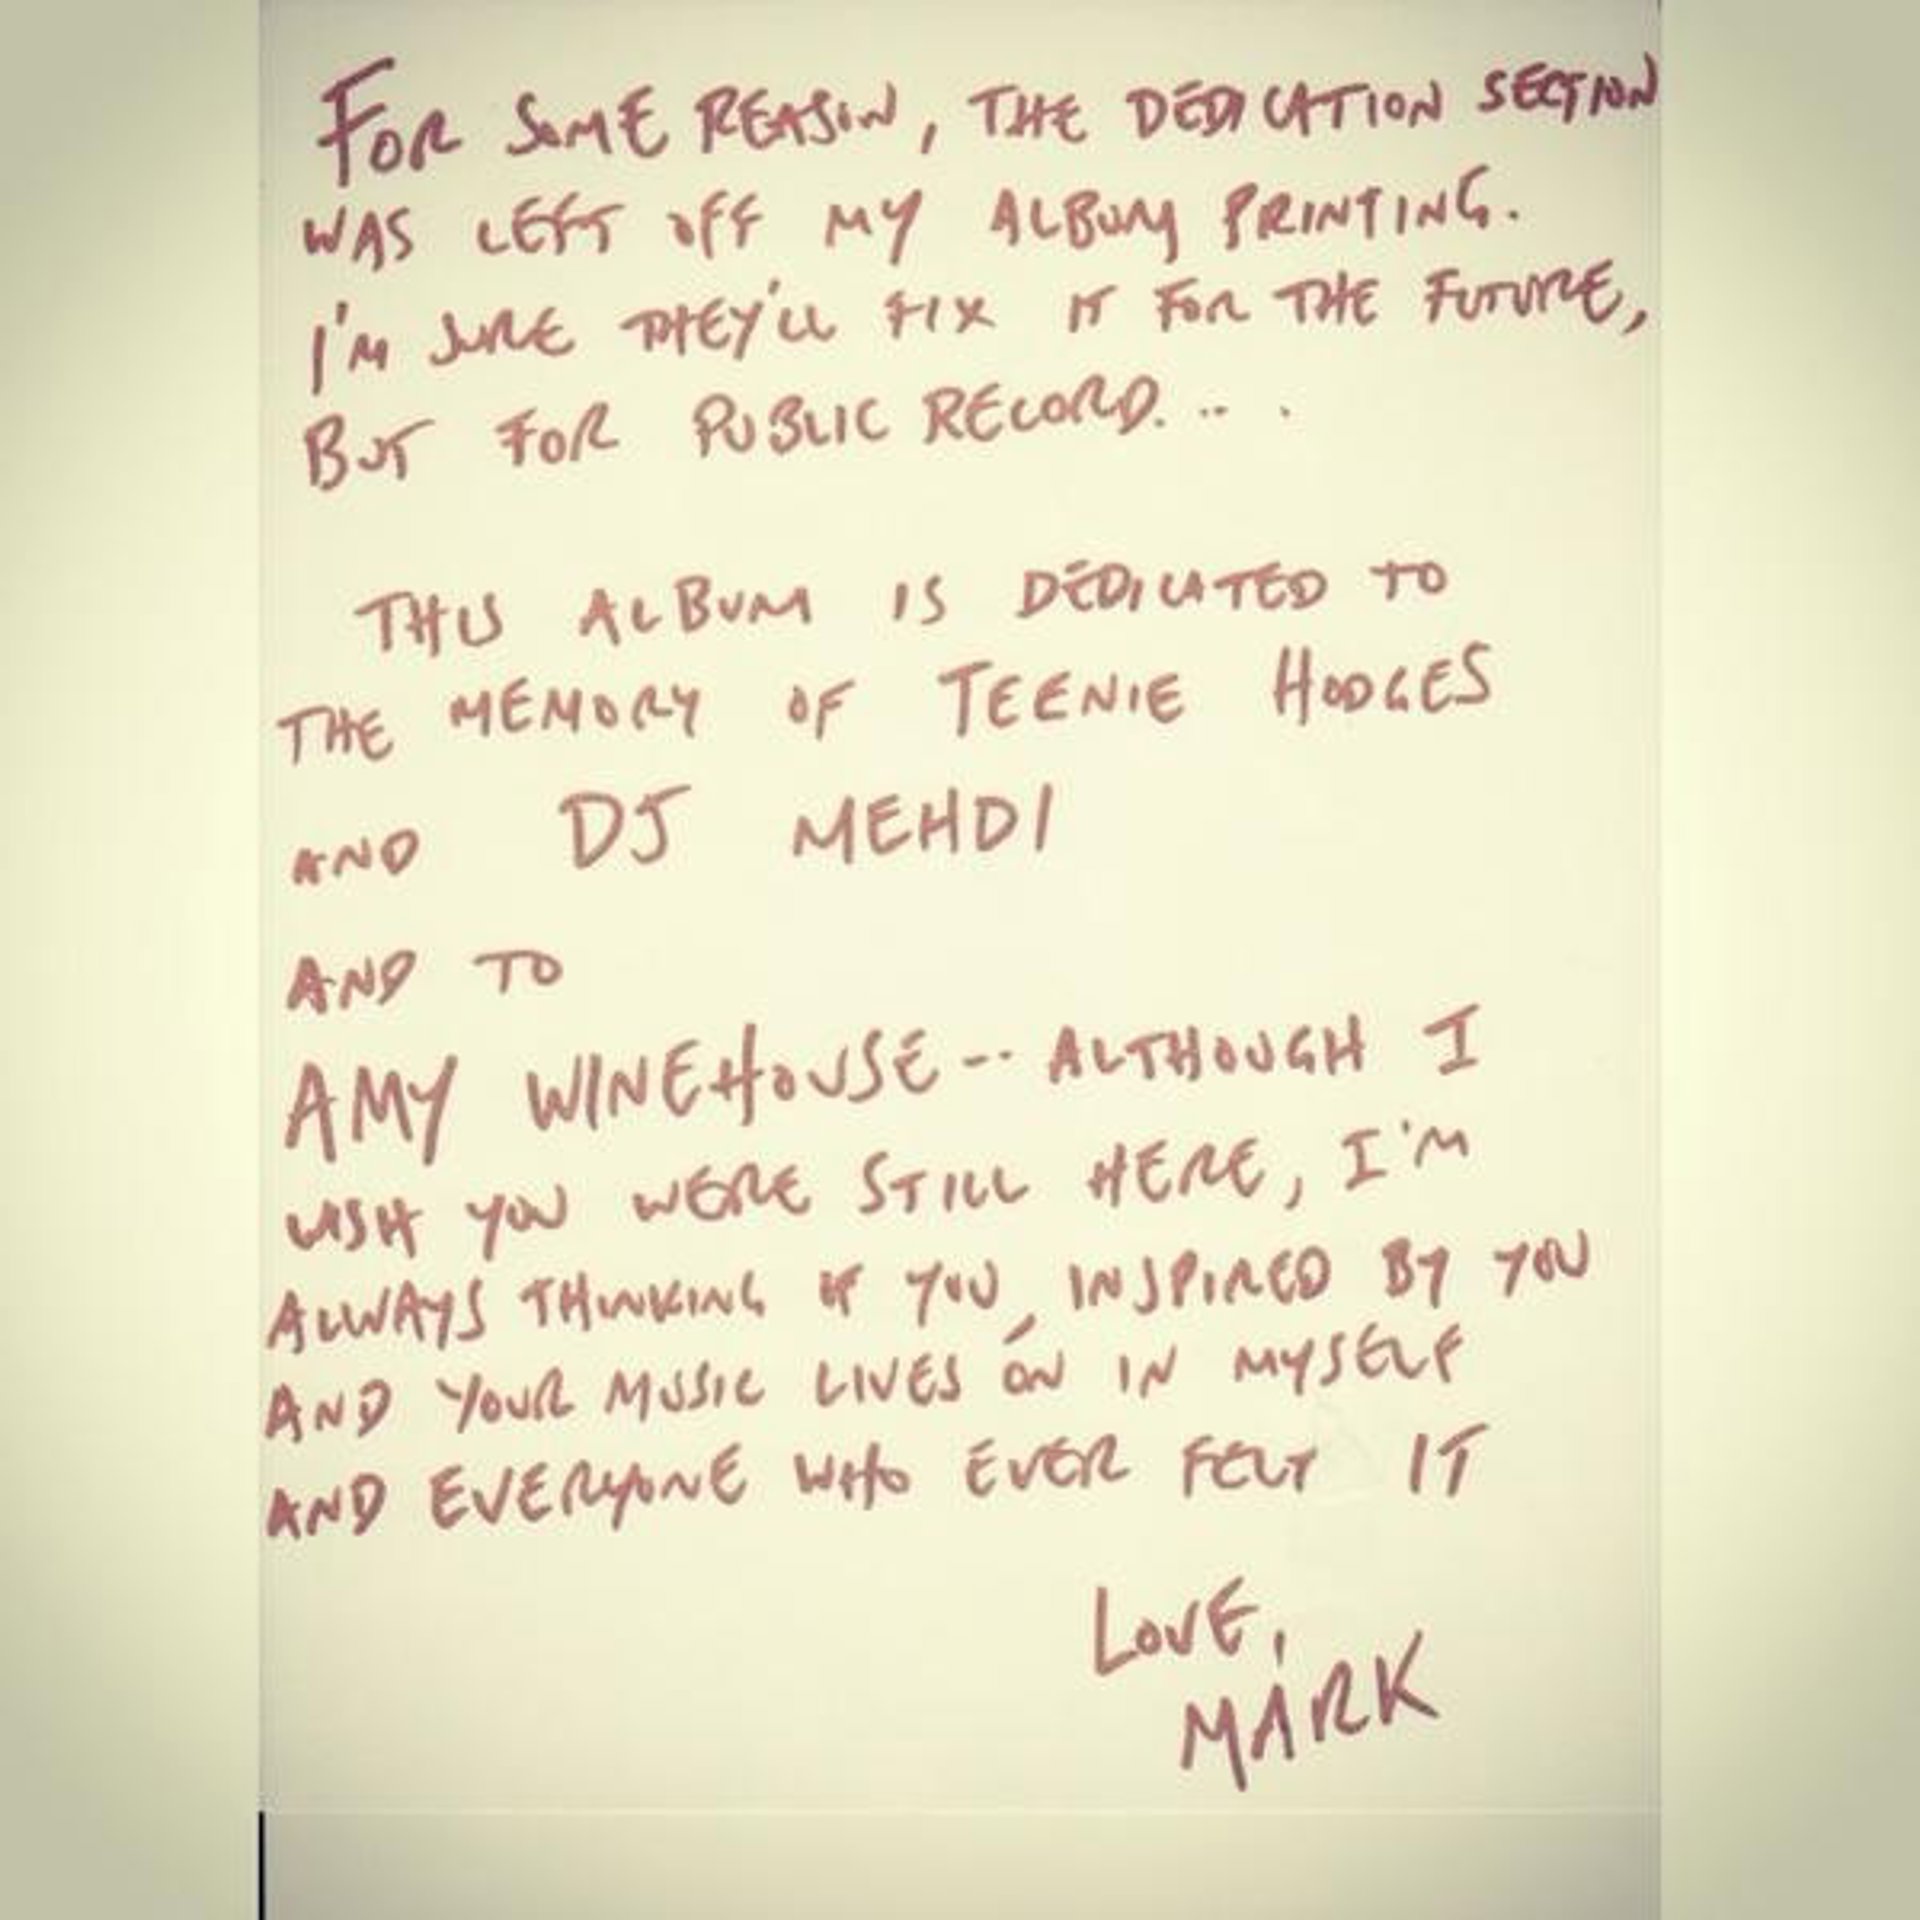 FOR SOME REASON, THE DEDICATION SECTION
WAS LEFT OFF MY ALBUM PRINTING.
I'M SURE THEY'LL FIX IT FOR THE FUTURE,
BUT FOR PUBLIC RECORD....
THIS ALBUM IS DEDICATED TO
THE MEMORY OF TEENIE HODGES
AND DJ MEHDI
AND TO
AMY WINEHOUSE -- ALTHOUGH I
WISH YOU WERE STILL HERE, I'M
ALWAYS THINKING OF YOU, INSPIRED BY YOU
AND YOUR MUSIC LIVES ON IN MYSELF
AND EVERYONE WHO EVER FELT IT
LOVE,
MARK